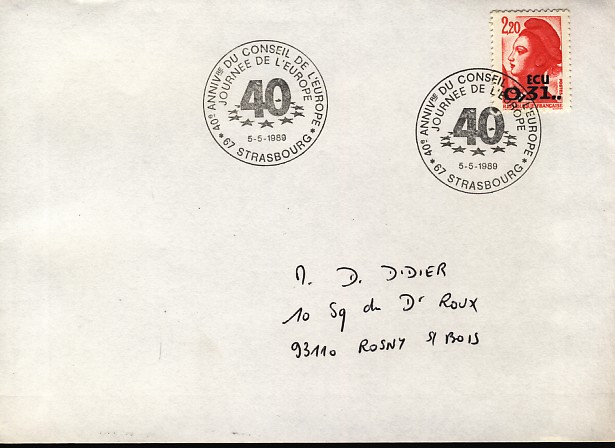 40e ANNIVre DU CONSEIL DE L'EUROPE
JOURNEE DE L'EUROPE
40
5-5-1989
* 67 STRASBOURG *
2,20
ECU
0,31..
REPUBLIQUE FRANÇAISE
POSTES
40e ANNIVre DU CONSEIL DE L'EUROPE
JOURNEE DE L'EUROPE
40
5-5-1989
* 67 STRASBOURG *
M. D. DIDIER
10 Sq du Dr ROUX
93110 ROSNY s/ BOIS